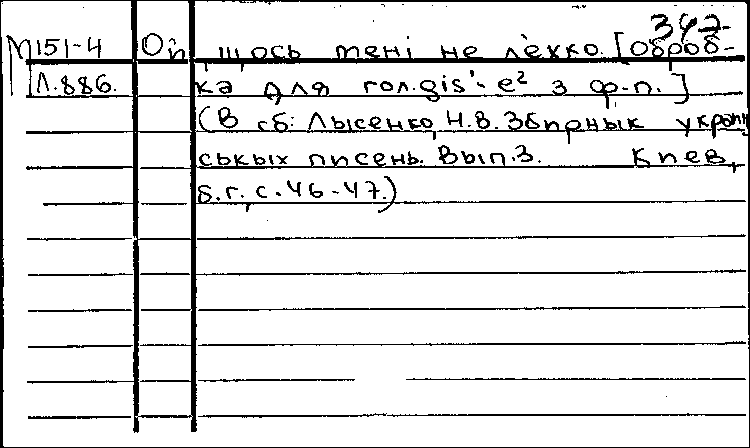 347
М151-4 Ой, щось мені не лехко. [Оброб-
Л.886. ка для гол. gis'- e² з ф.-п.]
(В сб: Лысенко, Н.В. Збирнык украин
ськых писень. Вып.3. Киев,
б.г., с.46-47.)